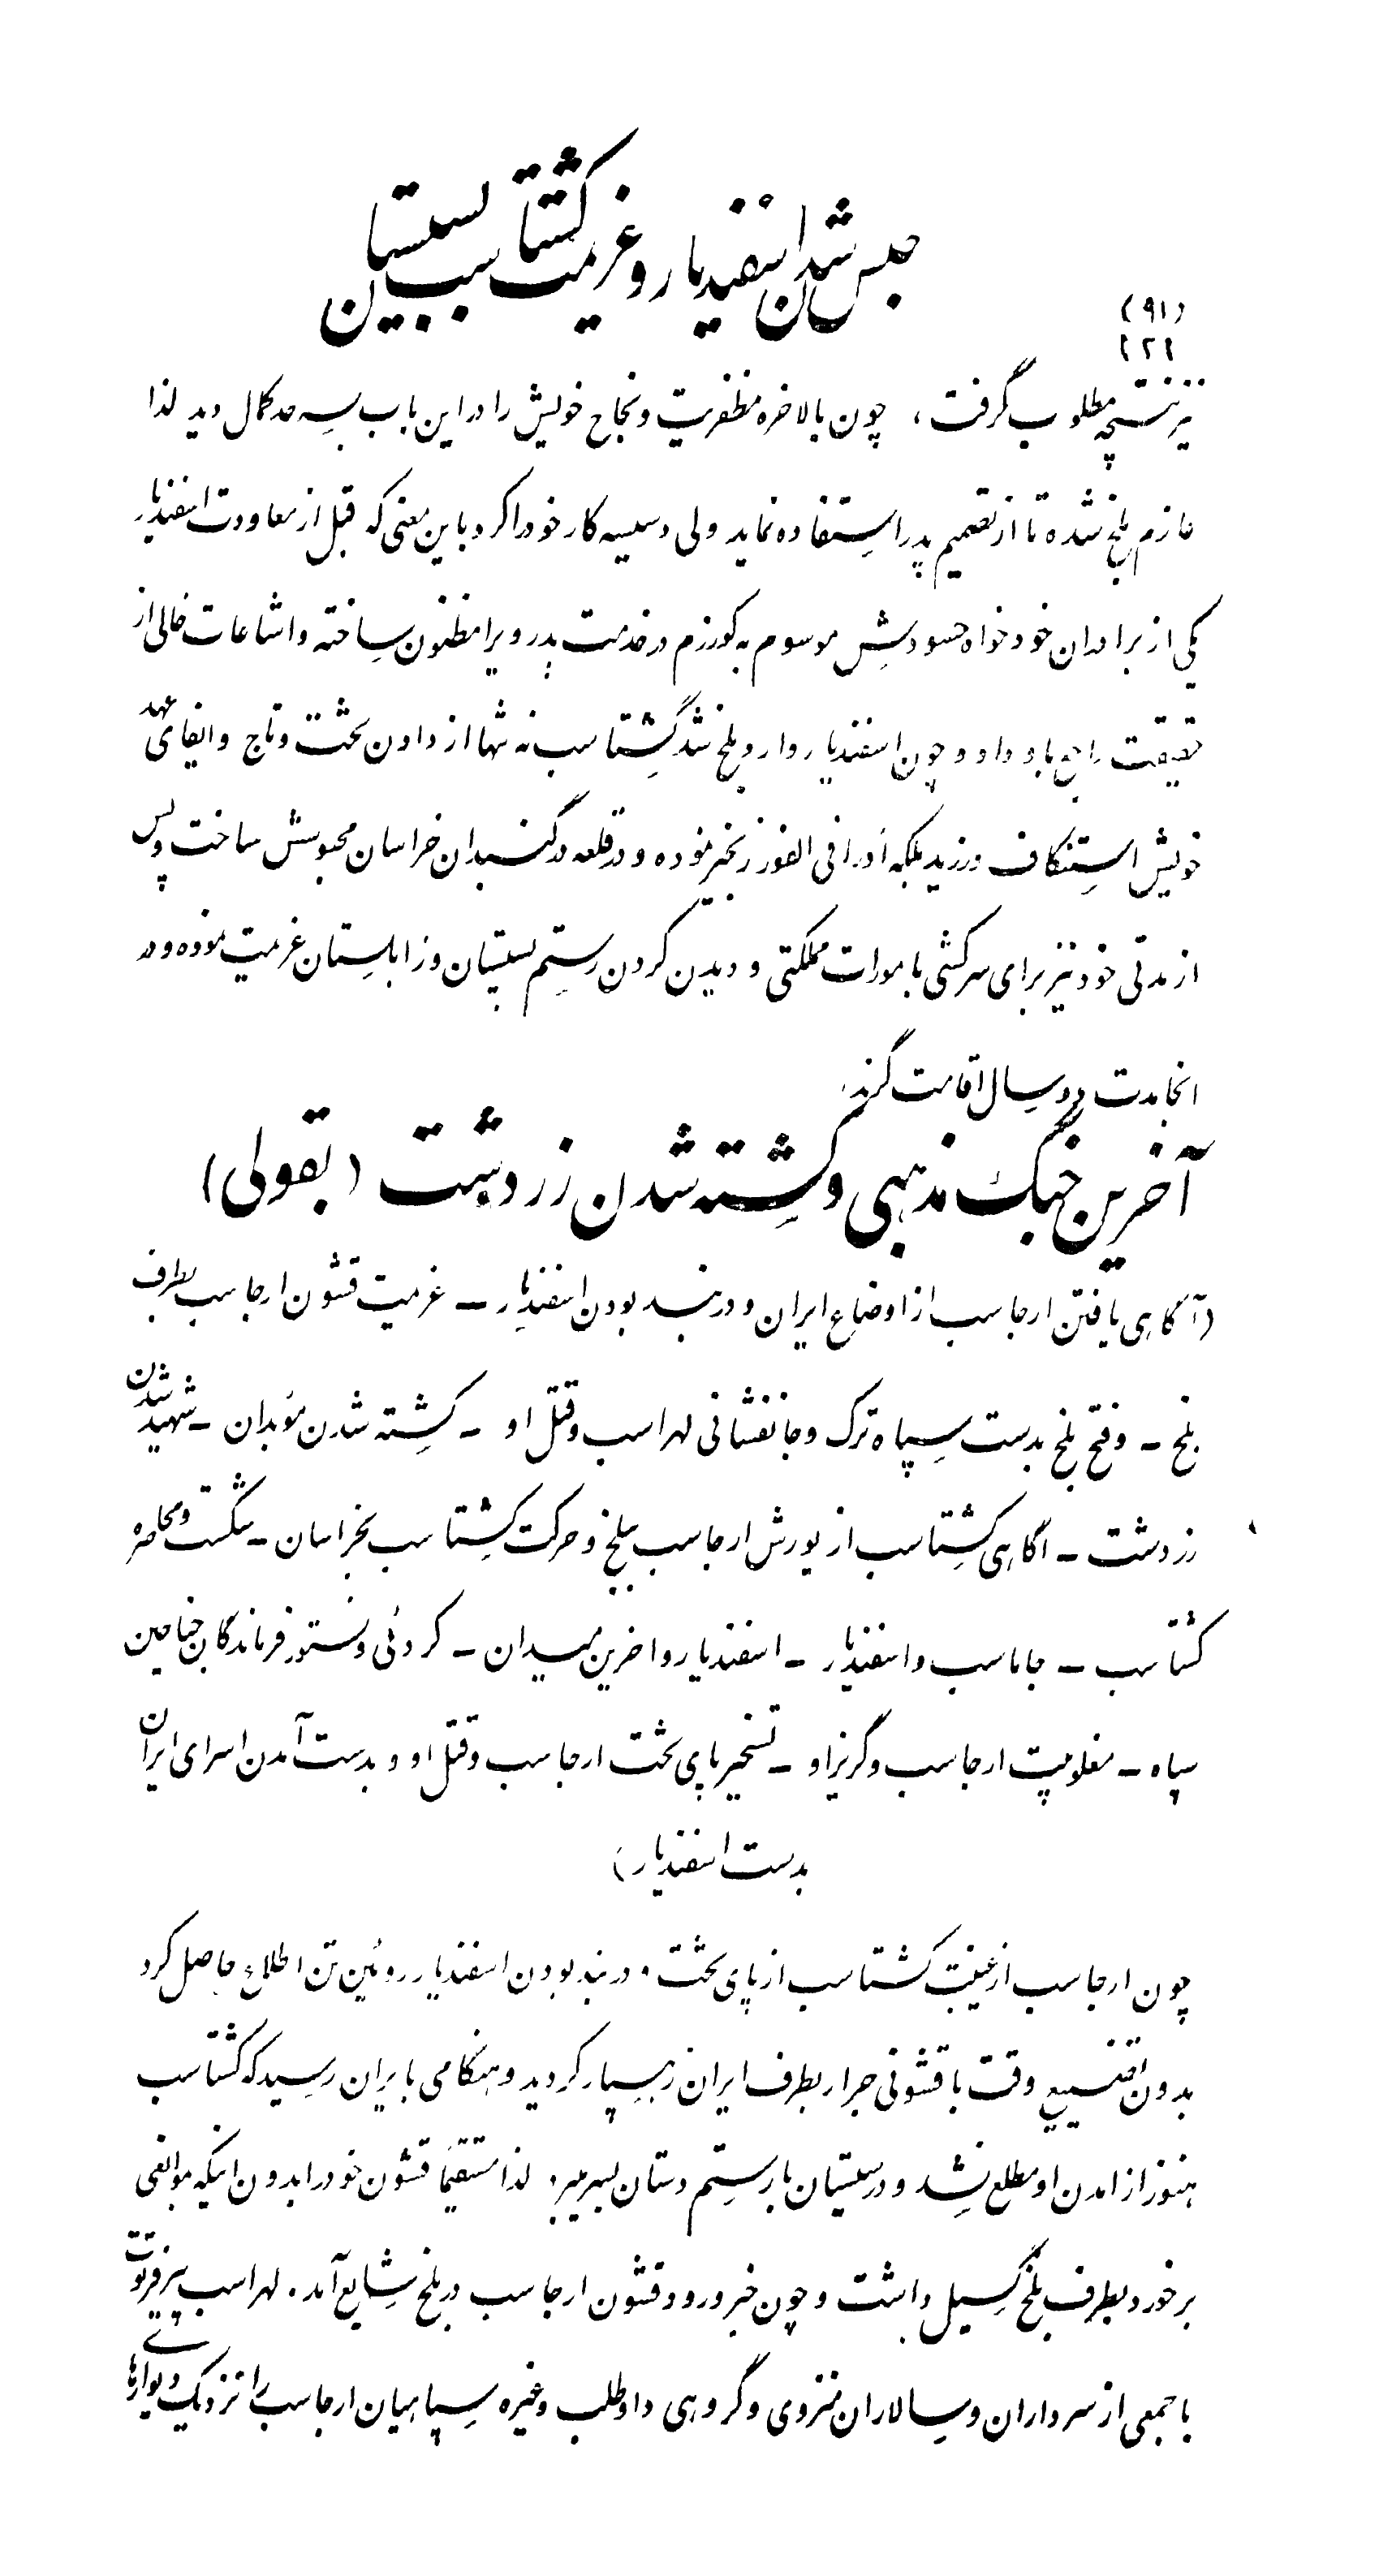 حبس شدن اسفندیار و عزیمت گشتاسب بسیستان
(۹۱)
۱۲۱
نیز نتیجه مطلوب گرفت ، چون بالاخره مظفریت و نجاح خویش را در این باب بسر حد کمال دید لذا
عازم بلخ شده تا از تصمیم پدر استفاده نماید ولی دسیسه کار خود را کرد باین معنی که قبل از معاودت اسفندیار
یکی از برادران خودخواه حسودش موسوم به کورزم در خدمت پدر ویرا مظنون ساخته و اشاعات خالی از
حقیقت راجع باو داد و چون اسفندیار وارد بلخ شد گشتاسب نه تنها از دادن تخت و تاج و ایفای عهد
خویش استنکاف ورزید بلکه او را فی الفور زنجیر نموده و در قلعه در گنبدان خراسان محبوسش ساخت و پس
از مدتی خود نیز برای سرکشی بامورات مملکتی و دیدن کردن رستم بسیستان و زابلستان عزیمت نموده و در
انجا مدت دو سال اقامت گزید.
آخرین جنگ مذهبی و کشته شدن زردشت (بقولی)
(آگاهی یافتن ارجاسب از اوضاع ایران و در بند بودن اسفندیار ـ عزیمت قشون ارجاسب بطرف
بلخ ـ و فتح بلخ بدست سپاه ترک و جانفشانی لهراسب و قتل او ـ کشته شدن موبدان ـ شهید شدن
زردشت ـ اگاهی گشتاسب از یورش ارجاسب ببلخ و حرکت گشتاسب بخراسان ـ شکست و محاصره
گشتاسب ـ جاماسب و اسفندیار ـ اسفندیار و اخرین میدان ـ کردئی و نستور فرماندگان جناحین
سپاه ـ مغلوبیت ارجاسب و گریز او ـ تسخیر پای تخت ارجاسب و قتل او و بدست آمدن اسرای ایران
بدست اسفندیار)
چون ارجاسب از غیبت گشتاسب از پای تخت و در بند بودن اسفندیار روئین تن اطلاع حاصل کرد
بدون تضییع وقت با قشونی جرار بطرف ایران رهسپار گردید و هنگامی بایران رسید که گشتاسب
هنوز از امدن او مطلع نشد و در سیستان با رستم دستان بسر میبرد لذا مستقیماً قشون خود را بدون اینکه بموانعی
برخورد بطرف بلخ گسیل داشت و چون خبر ورود قشون ارجاسب در بلخ شایع آمد . لهراسب پیر فرتوت
با جمعی از سرداران و سالاران منزوی و گروهی داوطلب و غیره سپاهیان ارجاسب را نزدیک دیوارهای